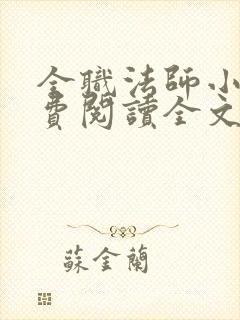 全職法師小
費閱讀全文
蘇金蘭